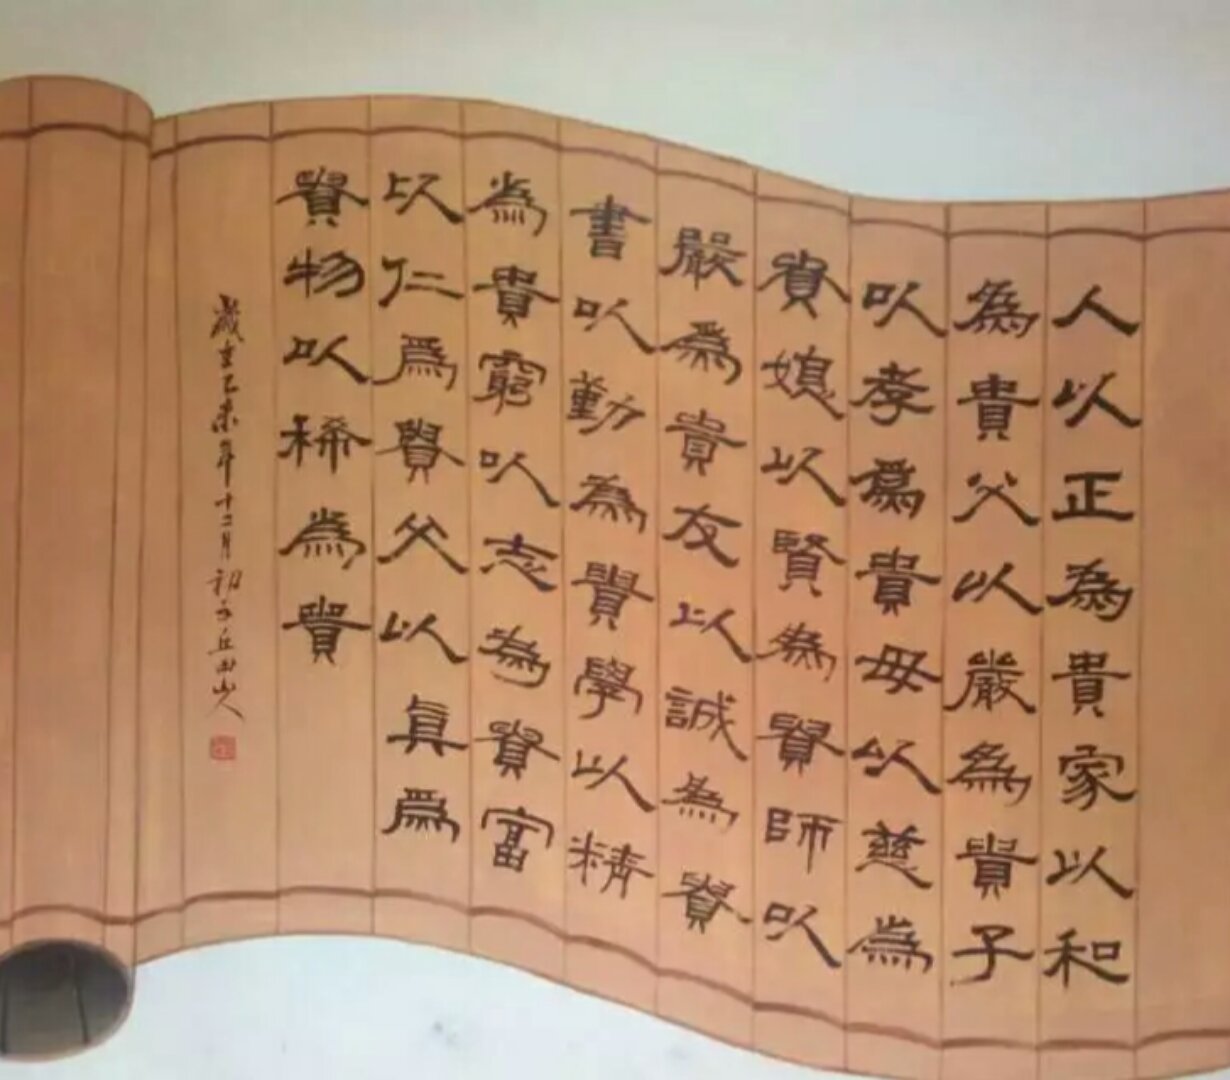 人以正為貴家以和
為貴父以嚴為貴子
以孝為貴母以慈為
貴媳以賢為貴師以
嚴為貴友以誠為貴
書以勤為貴學以精
為貴窮以志為貴富
以仁為貴父以眞為
貴物以稀為貴
歲在乙未年十二月初丘田山人